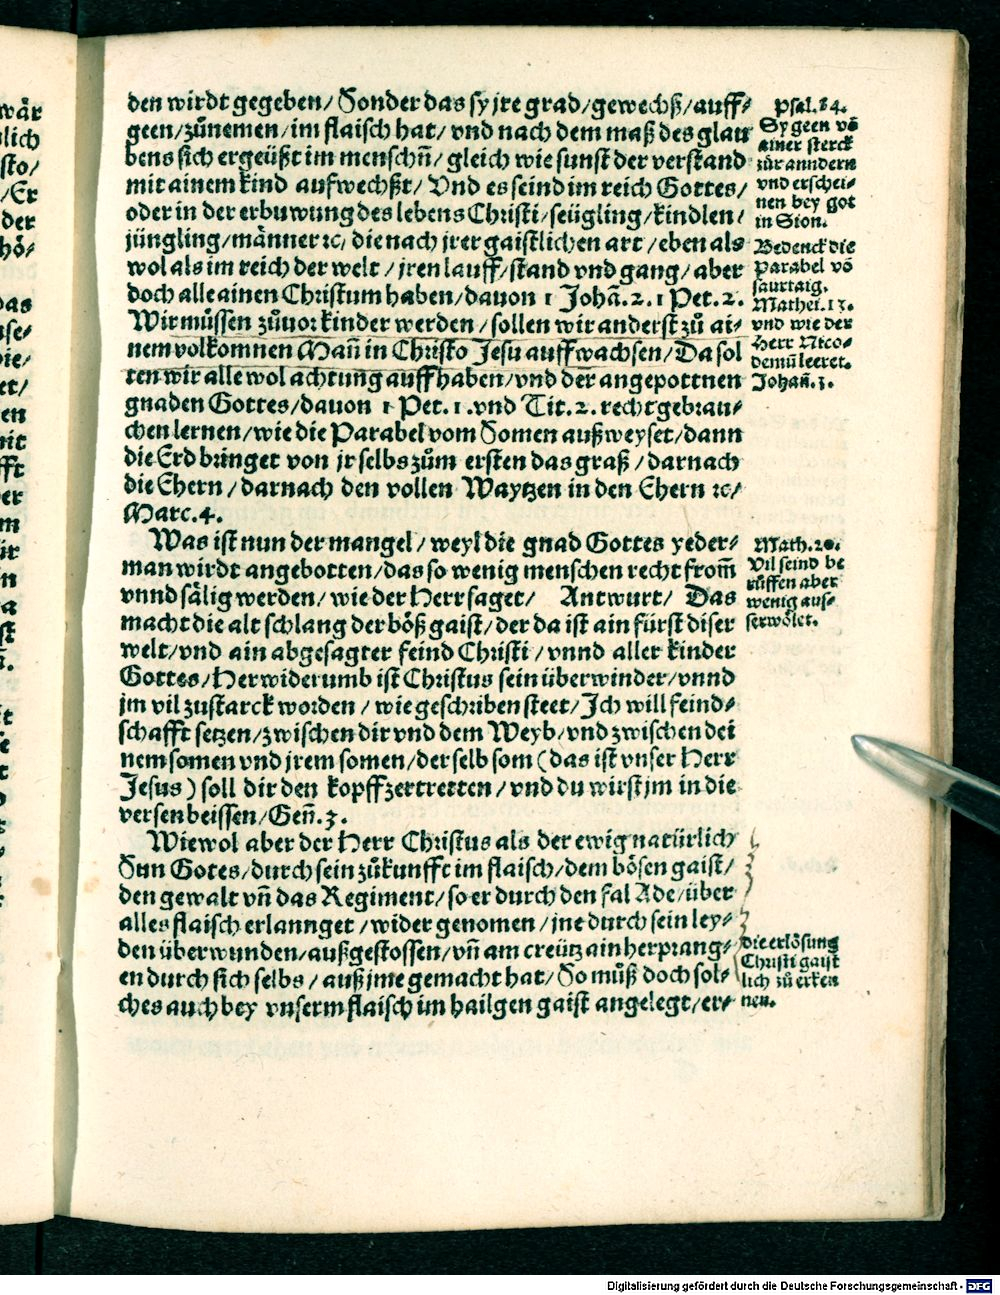 den wirdt gegeben/ Sonder das sy jre grad/ gewechß/ auff⸗
geen/ zůnemen/ im flaisch hat/ vnd nach dem maß des glau
bens sich ergeüßt im menschñ/ gleich wie sunst der verstand
mit ainem kind aufwechßt/ Vnd es seind im reich Gottes/
oder in der erbuwung des lebens Christi/ seügling/ kindlen/
jüngling/ männer ꝛc/ die nach jrer gaistlichen art/ eben als
wol als im reich der welt/ jren lauff/ stand vnd gang/ aber
doch alle ainen Christum haben/ dauon 1 Johã. 2. 1 Pet. 2.
Wir můssen zůuor kinder werden/ sollen wir anderst zů ai⸗
nem volkomnen Mañ in Christo Jesu auffwachsen/ Da sol
ten wir alle wol achtung auff haben/ vnd der angepottnen
gnaden Gottes/ dauon 1 Pet. 1. vnd Tit. 2. recht gebrau⸗
chen lernen/ wie die Parabel vom Somen außweyset/ dann
die Erd bringet von jr selbs zům ersten das graß/ darnach
die Ehern/ darnach den vollen Waytzen in den Ehern ꝛc/
Marc. 4.
Was ist nun der mangel/ weyl die gnad Gottes yeder⸗
man wirdt angebotten/ das so wenig menschen recht from̃
vnnd sälig werden/ wie der Herr saget/ Antwurt/ Das
macht die alt schlang der böß gaist/ der da ist ain fürst diser
welt/ vnd ain abgesagter feind Christi/ vnnd aller kinder
Gottes/ Herwiderumb ist Christus sein überwinder/ vnnd
jm vil zustarck worden/ wie geschriben steet/ Ich will feind⸗
schafft setzen/ zwischen dir vnd dem Weyb/ vnd zwischen dei
nem somen vnd jrem somen/ der selb som (das ist vnser Herr
Jesus) soll dir den kopff zertretten/ vnd du wirst jm in die
versen beissen/ Geñ. 3.
Wiewol aber der Herr Christus als der ewig natürlich
Sun Gotes/ durch sein zůkunfft im flaisch/ dem bösen gaist/
den gewalt vñ das Regiment/ so er durch den fal Ade/ über
alles flaisch erlannget/ wider genomen/ jne durch sein ley⸗
den überwunden/ außgestossen/ vñ am creütz ain herprang⸗
en durch sich selbs/ auß jme gemacht hat/ So můß doch sol⸗
ches auch bey vnserm flaisch im hailgen gaist angelegt/ er⸗
Psal. 84.
Sy geen võ
ainer sterck
zůr anndern
vnd erschei⸗
nen bey got
in Sion.
Bedenck die
Parabel võ
saurtaig.
Mathei. 13.
vnd wie der
Herr Nico⸗
demũ leeret.
Johañ. 3.
Math. 20.
Vil seind be
růffen aber
wenig ause⸗
serwölet.
die erlösung
Christi gaist
lich zů erken
nen.
wär
lich
sto/
/ Er
der
hö⸗
das
et/
en
mit
fft
er
m
ür
in
a
st
Digitalisierung gefördert durch die Deutsche Forschungsgemeinschaft - DFG